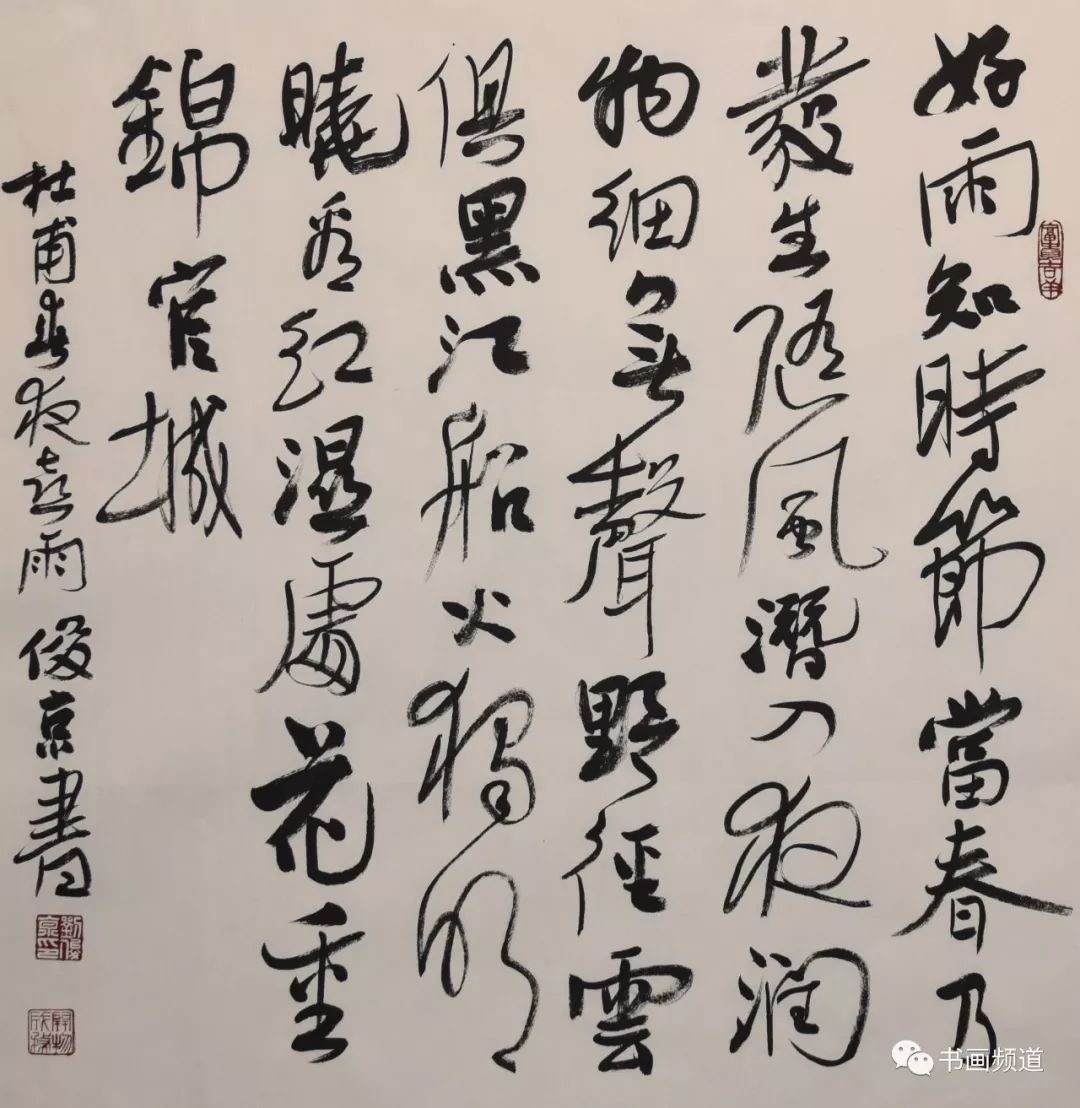 好雨知時節當春乃
發生随風潛入夜润
物細無聲野徑雲
俱黑江船火獨明
曉看紅濕處花重
錦官城
杜甫春夜喜雨 俊京書
劉俊京印
书画频道